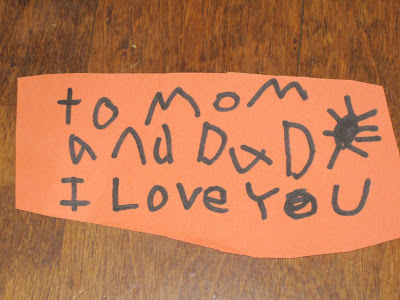 to MoM
and DaD
I Love YoU